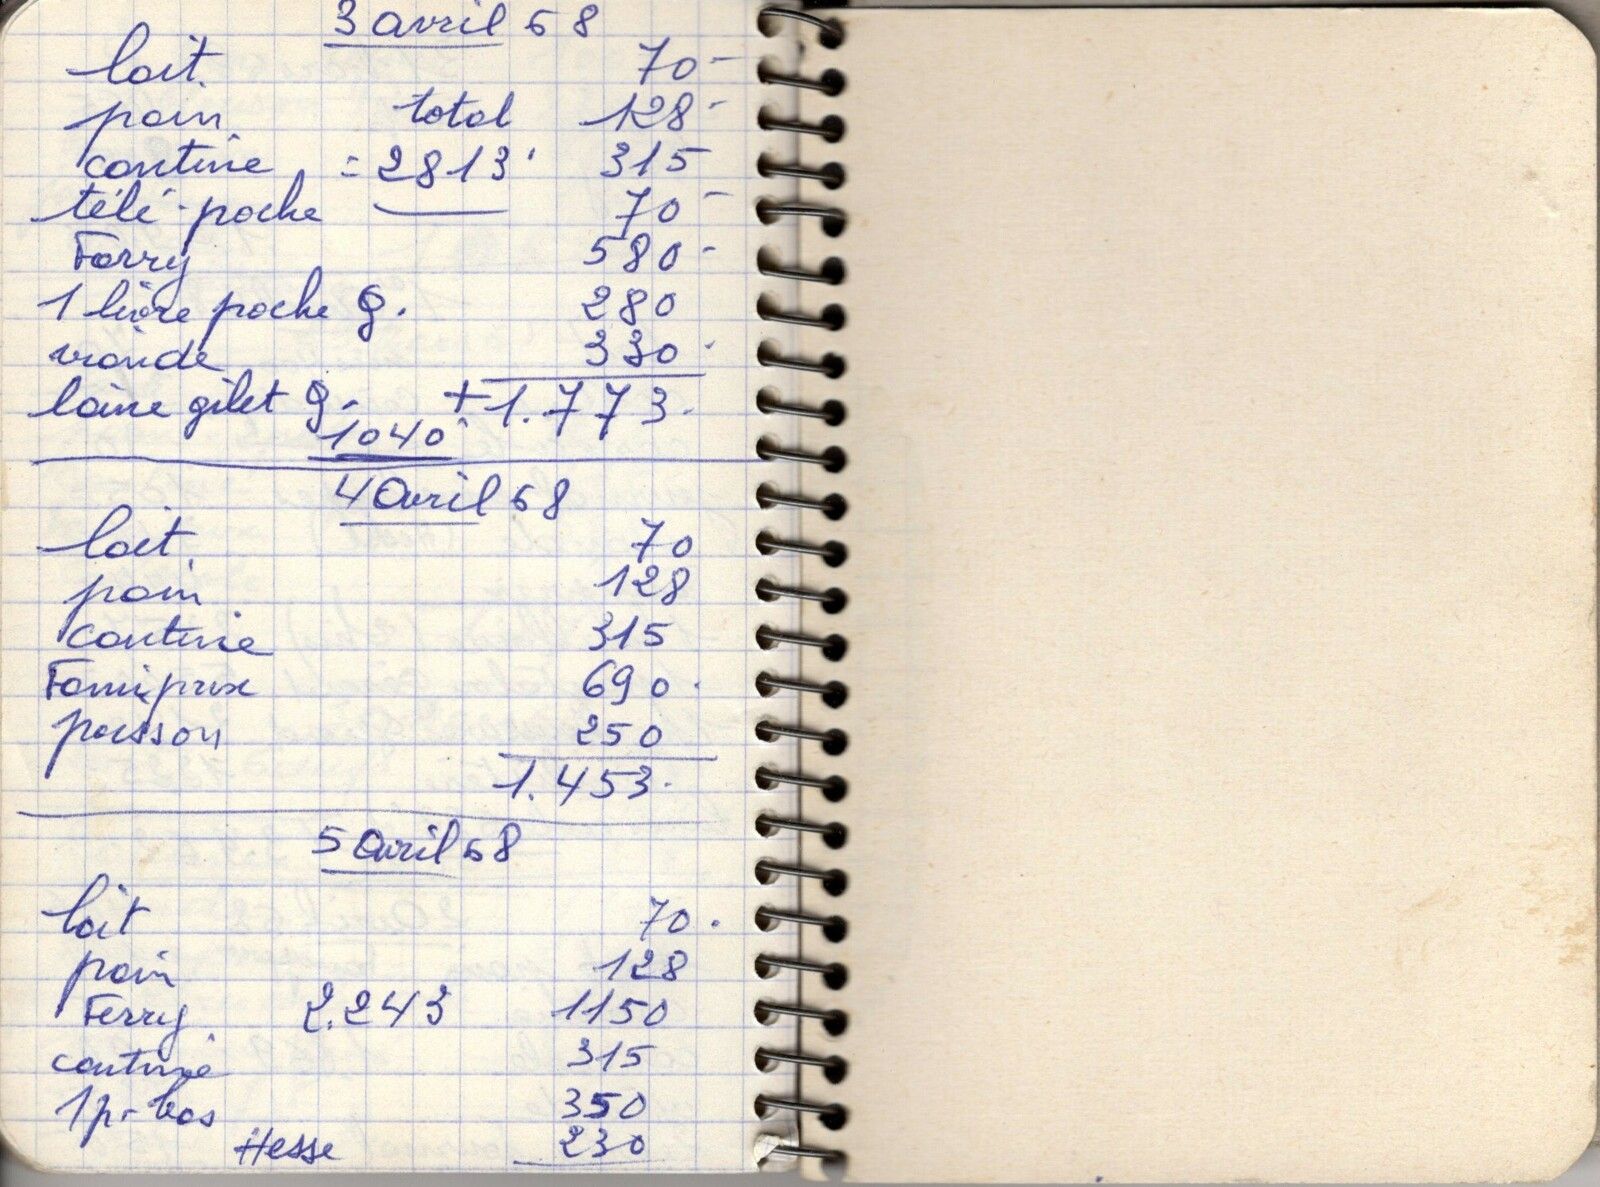 3 avril 68
lait 70-
pain total 128-
cantine = 2813 315
télé-poche 70-
Ferry 580-
1 livre poche g. 280
viande 330.
laine gilet g. + 1.773.
1040
4 avril 68
lait 70
pain 128
cantine 315
Famiprix 690.
poisson 250
1.453.
5 avril 68
lait 70.
pain 128
Ferry 2.243 1150
cantine 315
1 p. bas 350
Hesse 230